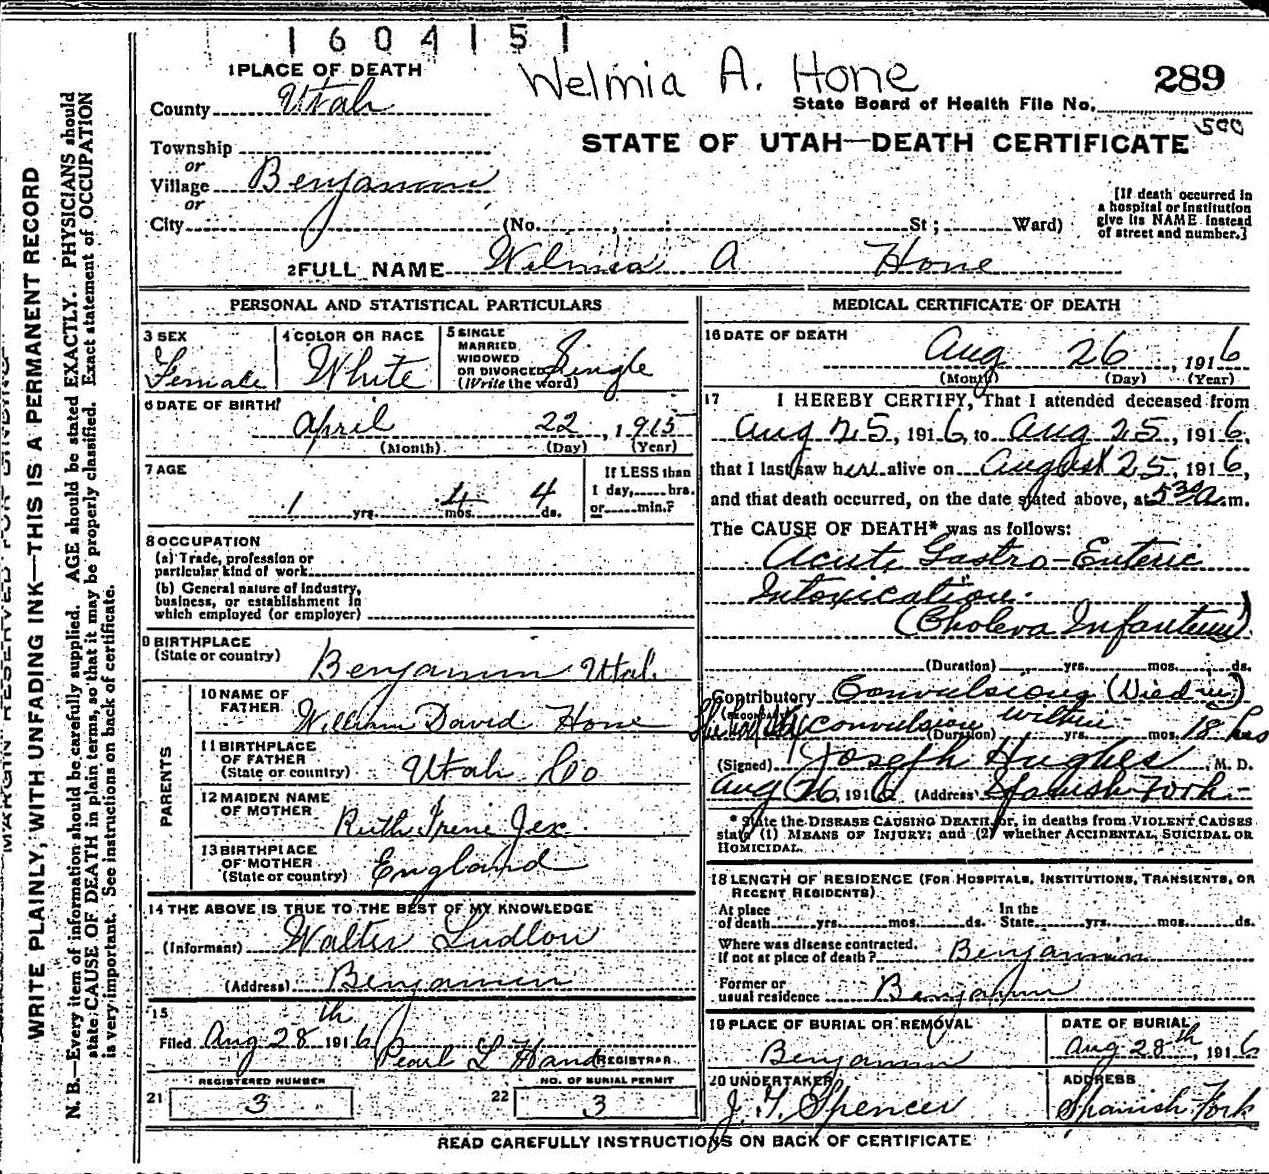 1604151
1 PLACE OF DEATH
Welmia A. Hone
289
County Utah
State Board of Health File No.
500
STATE OF UTAH—DEATH CERTIFICATE
Township
or
Village Benjamin
or
City (No. , St; Ward)
[If death occurred in
a hospital or institution
give its NAME instead
of street and number.]
2 FULL NAME Wilmia A Hone
PERSONAL AND STATISTICAL PARTICULARS
3 SEX
Female
4 COLOR OR RACE
White
5 SINGLE
MARRIED
WIDOWED
OR DIVORCED
(Write the word)
Single
6 DATE OF BIRTH
April 22, 1915
(Month) (Day) (Year)
7 AGE
1 yrs. 4 mos. 4 ds.
If LESS than
1 day, hrs.
or min.?
8 OCCUPATION
(a) Trade, profession or
particular kind of work
(b) General nature of industry,
business, or establishment in
which employed (or employer)
9 BIRTHPLACE
(State or country)
Benjamin Utah.
PARENTS
10 NAME OF
FATHER
William David Hone
11 BIRTHPLACE
OF FATHER
(State or country)
Utah Co
12 MAIDEN NAME
OF MOTHER
Ruth Irene Jex
13 BIRTHPLACE
OF MOTHER
(State or country)
England
14 THE ABOVE IS TRUE TO THE BEST OF MY KNOWLEDGE
(Informant) Walter Ludlow
(Address) Benjamin
15
Filed Aug 28th 1916 Pearl L Hand REGISTRAR
REGISTERED NUMBER
21 3
NO. OF BURIAL PERMIT
22 3
MEDICAL CERTIFICATE OF DEATH
16 DATE OF DEATH
Aug 26, 1916
(Month) (Day) (Year)
17 I HEREBY CERTIFY, That I attended deceased from
Aug 25, 1916, to Aug 25, 1916,
that I last saw her alive on August 25, 1916,
and that death occurred, on the date stated above, at 5 30 a.m.
The CAUSE OF DEATH* was as follows:
Acute Gastro-Enteric
Intoxication.
(Cholera Infantum)
(Duration) yrs. mos. ds.
Contributory Convulsions (Died in
convulsion within 18 hrs
(Duration) yrs. mos.
(Signed) Joseph Hughes M. D.
Aug 26, 1916 (Address) Spanish Fork
* State the DISEASE CAUSING DEATH, or, in deaths from VIOLENT CAUSES
state (1) MEANS OF INJURY; and (2) whether ACCIDENTAL, SUICIDAL OR
HOMICIDAL.
18 LENGTH OF RESIDENCE (FOR HOSPITALS, INSTITUTIONS, TRANSIENTS, OR
RECENT RESIDENTS)
At place
of death yrs. mos. ds.
In the
State yrs. mos. ds.
Where was disease contracted,
if not at place of death? Benjamin
Former or
usual residence Benjamin
19 PLACE OF BURIAL OR REMOVAL
Benjamin
DATE OF BURIAL
Aug 28th, 1916
20 UNDERTAKER
J. T. Spencer
ADDRESS
Spanish Fork
READ CAREFULLY INSTRUCTIONS ON BACK OF CERTIFICATE
MARGIN RESERVED FOR BINDING
WRITE PLAINLY, WITH UNFADING INK—THIS IS A PERMANENT RECORD
N. B.—Every item of information should be carefully supplied. AGE should be stated EXACTLY. PHYSICIANS should
state CAUSE OF DEATH in plain terms, so that it may be properly classified. Exact statement of OCCUPATION
is very important. See instructions on back of certificate.